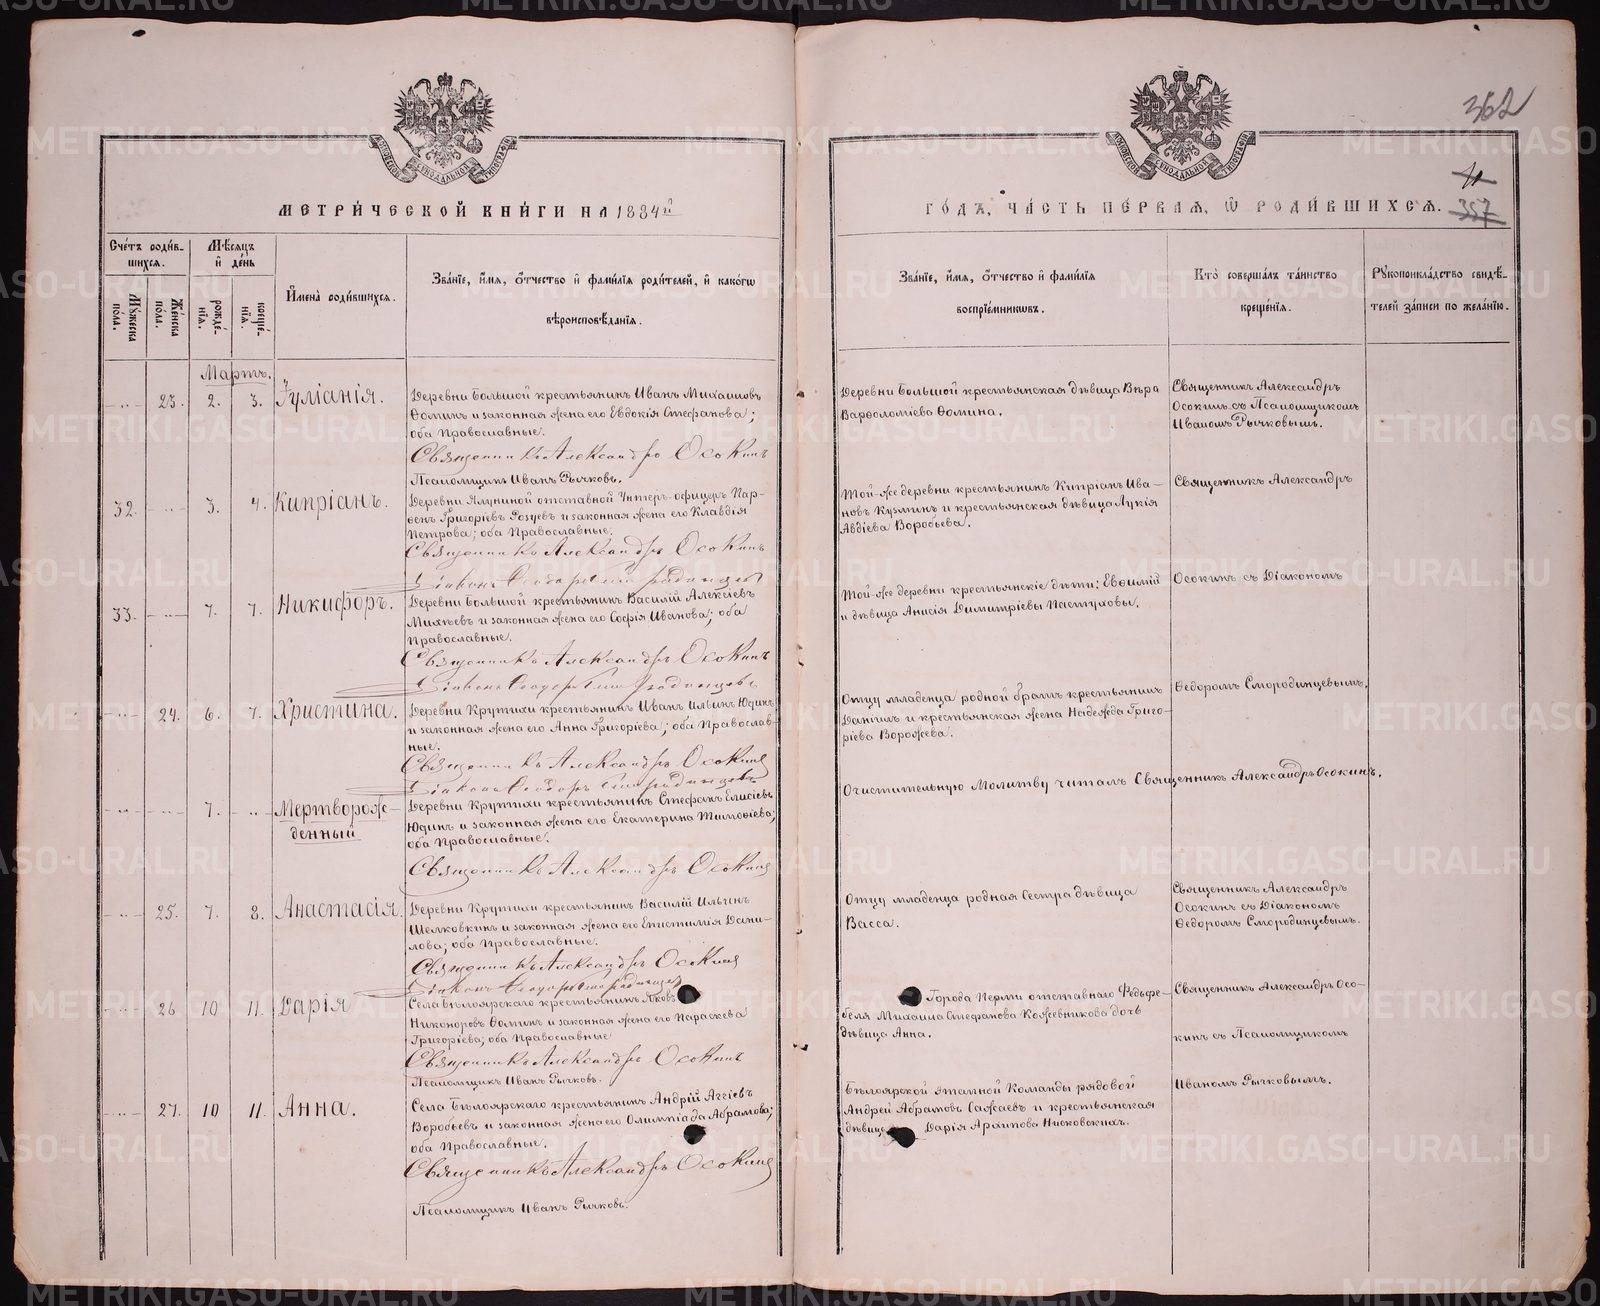 362
11
357
МЕТРИ́ЧЕСКОЙ КНИ́ГИ НА 1884й
ГО́ДЪ, ЧА́СТЬ ПЕ́РВАЯ, Ѿ РОДИ́ВШИХСЯ.
Сче́тъ роди́в-
шихся.
Мѣ́сяцъ
и҆ де́нь
Мꙋ́жеска
по́ла.
Же́нска
по́ла.
рожде́-
нїѧ.
креще́-
нїѧ.
И҆мена̀ роди́вшихся.
Зва́нїе, и҆́мя, ѻ҆́тчество и҆ фами́лїя роди́телей, и҆ како́гѡ
вѣроисповѣ́данїя.
Зва́нїе, и҆́мя, ѻ҆́тчество и҆ фами́лїя
воспрїе́мникѡвъ.
Кто̀ соверша́лъ та́инство
креще́нїя.
Рꙋкоприкла́дство свидѣ́-
телей за́писи по жела́нїю.
Мартъ.
-„- 23. 2. 3. Іуліанія.
Деревни Большой крестьянинъ Иванъ Михаиловъ
Ѳоминъ и законная жена его Евдокія Стефанова;
оба Православные.
Священникъ Александръ Осокинъ
Псаломщикъ Иванъ Рычковъ.
Деревни Большой крестьянская дѣвица Вѣра
Варѳоломіева Ѳомина.
Священникъ Александръ
Осокинъ съ Псаломщикомъ
Иваномъ Рычковымъ.
32. -„- 3. 4. Кипріанъ.
Деревни отставной Унтеръ-офицеръ Пар-
ѳенъ Григоріевъ и законная жена его Клавдія
Петрова; оба Православные.
Священникъ Александръ Осокинъ
Діаконъ Ѳеодоръ Смородинцевъ
Той-же деревни крестьянинъ Кипріанъ Ива-
новъ Кузминъ и крестьянская дѣвица Лукія
Авдіева Воробьева.
Священникъ Александръ
33. -„- 7. 7. Никифоръ.
Деревни Большой крестьянинъ Василій Алексіевъ
Михѣевъ и законная жена его Софія Иванова; оба
Православные.
Священникъ Александръ Осокинъ
Діаконъ Ѳеодоръ Смородинцевъ
Той-же деревни крестьянскіе дѣти: Евѳимій
и дѣвица Анисія Димитріевы Пастуховы.
Осокинъ съ Діакономъ
-„- 24. 6. 7. Христина.
Деревни Крутихи крестьянинъ Иванъ Ильинъ Юдинъ
и законная жена его Анна Григоріева; оба Православ-
ные.
Священникъ Александръ Осокинъ
Діаконъ Ѳеодоръ Смородинцевъ
Отцу младенца родной братъ крестьянинъ
Даніилъ и крестьянская жена Надежда Григо-
ріева Ворожева.
Ѳедоромъ Смородинцевымъ.
-„- -„- 7. „ Мертворож-
денный
Деревни Крутихи крестьянинъ Стефанъ Елисіевъ
Юдинъ и законная жена его Екатерина Тимоѳіева;
оба Православные.
Священникъ Александръ Осокинъ
Очистительную Молитву читалъ Священникъ Александръ Осокинъ.
-„- 25. 7. 8. Анастасія.
Деревни Крутихи крестьянинъ Василій Ильинъ
Шелковкинъ и законная жена его Епистимія Дани-
лова; оба Православные.
Священникъ Александръ Осокинъ
Діаконъ Ѳеодоръ Смородинцевъ
Отцу младенца родная Сестра дѣвица
Васса.
Священникъ Александръ
Осокинъ съ Діакономъ
Ѳедоромъ Смородинцевымъ.
-„- 26 10 11. Дарія
Села Бѣлоярскаго крестьянинъ Яковъ
Никоноровъ Ѳоминъ и законная жена его Параскева
Григоріева; оба Православные
Священникъ Александръ Осокинъ
Псаломщикъ Иванъ Рычковъ.
Города Перми отставнаго Фельдфе-
беля Михаила Стефанова Кожевникова дочь
дѣвица Анна.
Священникъ Александръ Осо-
кинъ съ Псаломщикомъ
-„- 27. 10 11. Анна.
Села Бѣлоярскаго крестьянинъ Андрій Аггіевъ
Воробьевъ и законная жена его Олимпіада Абрамова;
оба Православные.
Священникъ Александръ Осокинъ
Псаломщикъ Иванъ Рычковъ.
Бѣлоярской этапной Команды рядовой
Андрей Абрамовъ Сажаевъ и крестьянская
дѣвица Дарія Архипова Нисковскихъ.
Иваномъ Рычковымъ.
METRIKI.GASO-URAL.RU